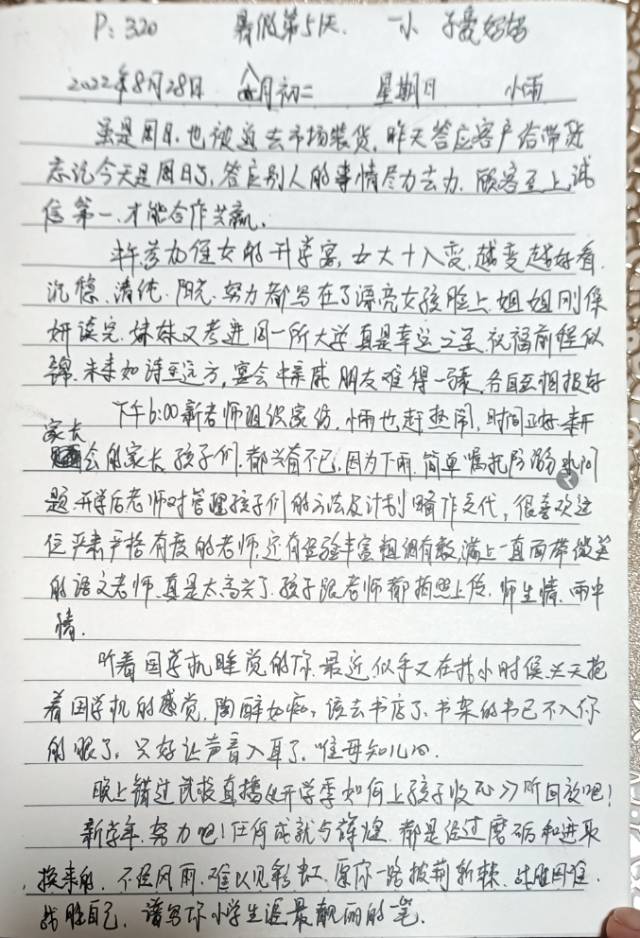 P: 320 暑假第51天. 一小 子爱妈妈
2022年8月28日 八月初二 星期日 小雨
虽是周日.也被迫去市场装货,昨天答应客户给带货
忘记今天是周日了,答应别人的事情尽力去办.顾客至上,诚
信第一.才能合作共赢.
午参加侄女的升学宴,女大十八变.越变越好看.
沉稳.清纯.阳光.努力都写在了漂亮女孩脸上.姐姐刚保
研读完.妹妹又考进同一所大学真是幸运之至.祝福前程似
锦.未来如诗至远方,宴会中亲戚朋友难得一聚.各自互相报好
下午6:00新老师组织家访.小雨也赶热闹,时间正好来开
家长会的家长孩子们.都兴奋不已.因为下雨.简单嘱托防溺水问
题.开学后老师对管理孩子们的方法及计划略作交代,很喜欢这
位严肃严格有度的老师.还有经验丰富粗细有致,满上一直面带微笑
的语文老师.真是太高兴了.孩子跟老师都拍照上传.师生情.雨中
情.
听着国学机睡觉的你.最近似乎又在找小时候天天抱
着国学机的感觉.陶醉如痴,该去书店了.书架的书已不入你
的眼了,只好让声音入耳了.唯母知儿心.
晚上错过武校直播《开学季如何上孩子收心》听回放吧!
新学年.努力吧!任何成就与辉煌.都是经过磨砺和进取
换来的.不经风雨.难以见彩虹.愿你一路披荆斩棘.战胜困难.
战胜自己,谱写你小学生涯最靓丽的一笔.